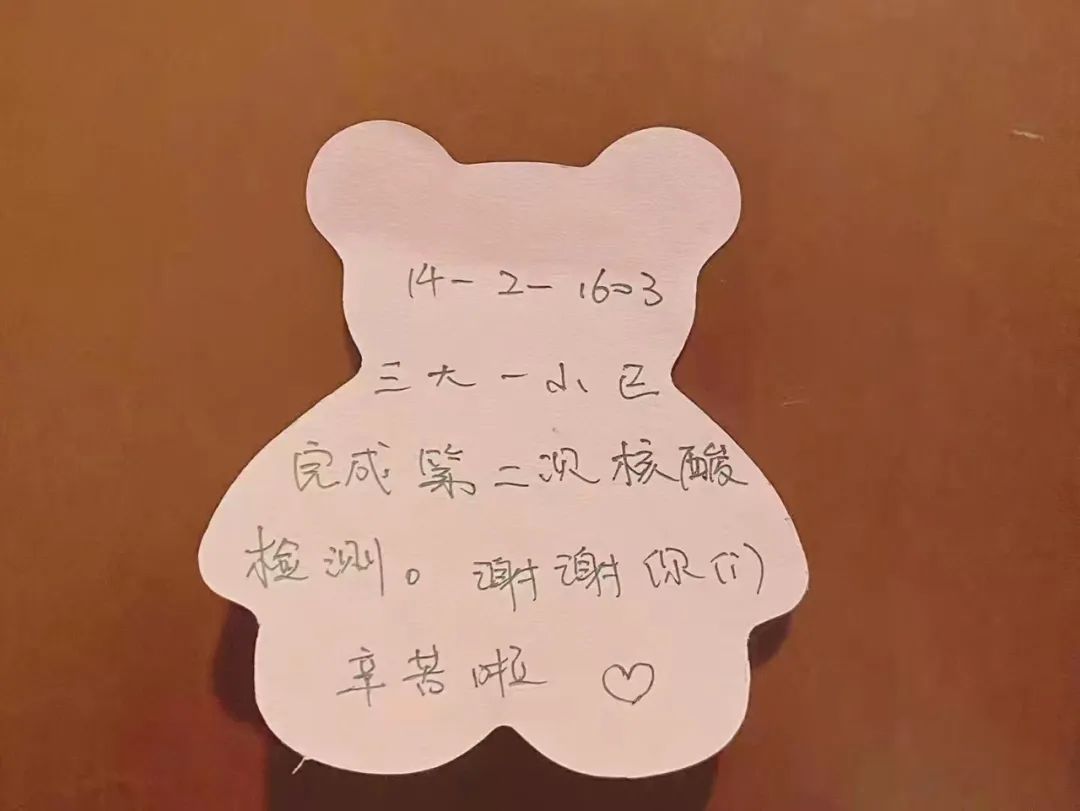 14-2-1603
三大一小区
完成第二次核酸
检测。谢谢你们
辛苦啦 ♡